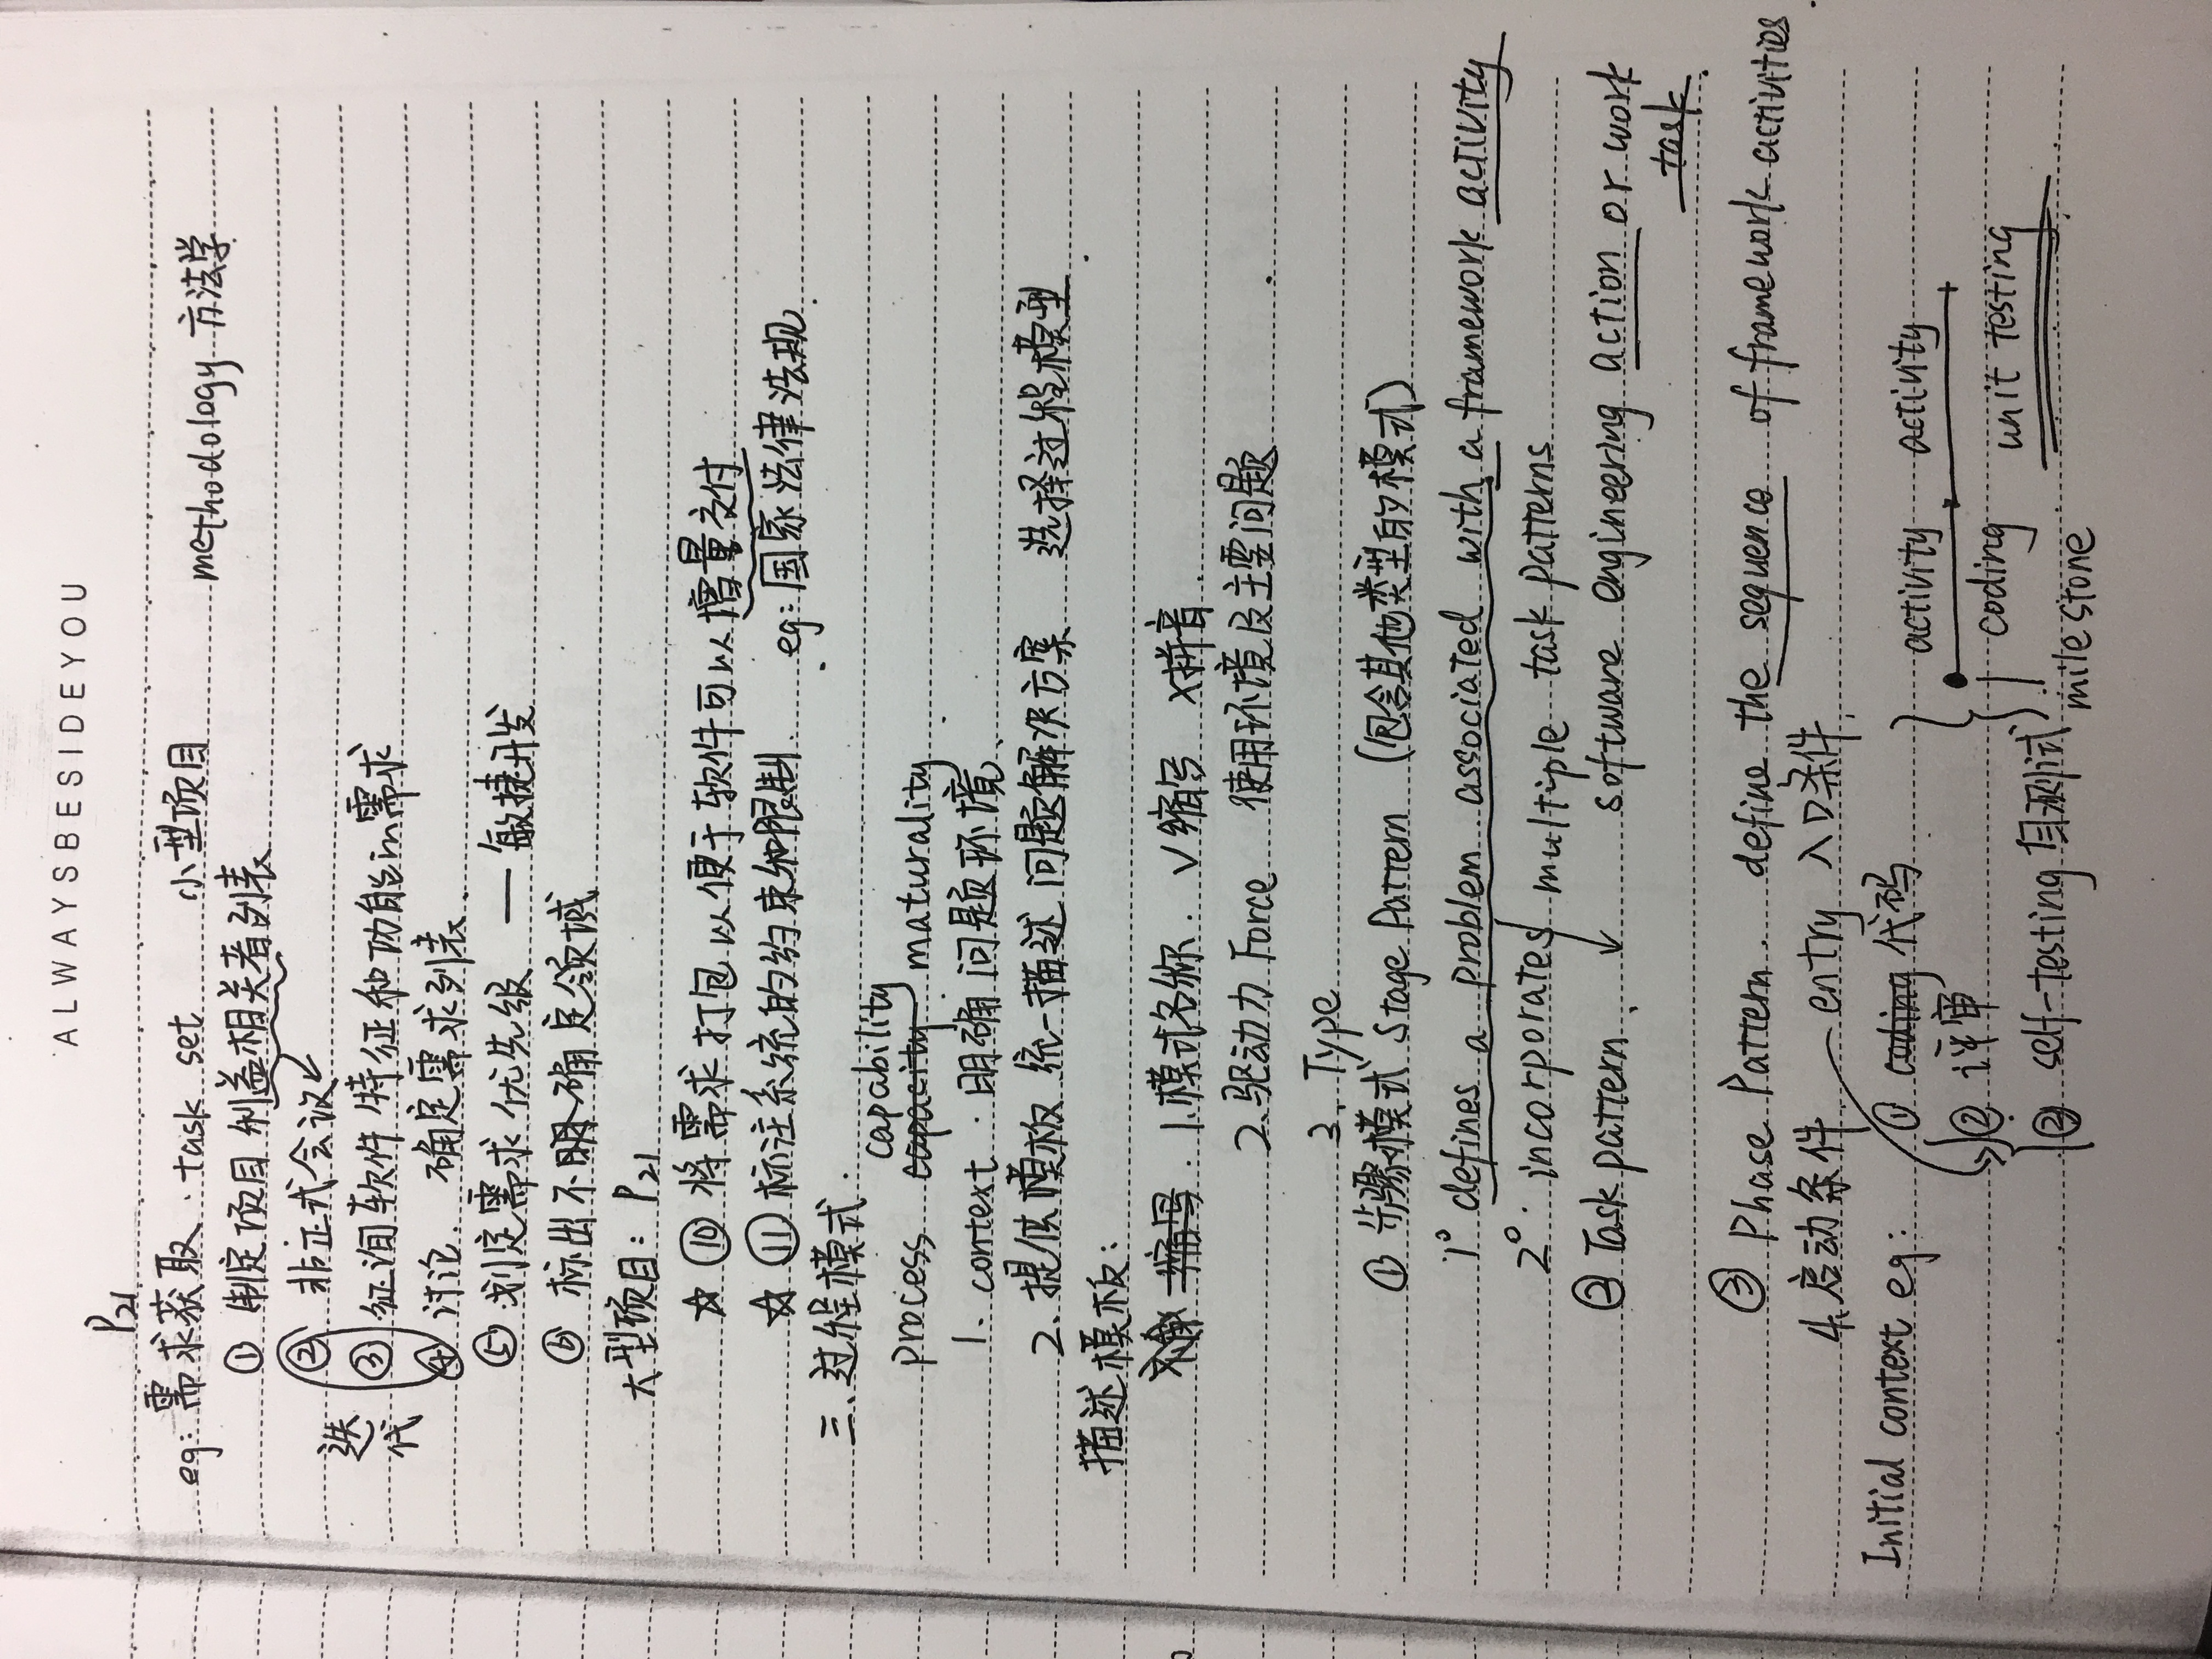 ALWAYSBESIDEYOU
P21
eg: 需求获取 . task set 小型项目 methodology 方法学
① 制定项目利益相关者列表
② 非正式会议
迭代
③ 征询软件特征和功能in需求
④ 讨论. 确定需求列表.
⑤ 划定需求优先级 — 敏捷开发
⑥ 标出不确定领域
大型项目: P21
☆ ⑩ 将需求打包以便于软件可以增量交付
☆ ⑪ 标注系统的约束和限制. eg: 国家法律法规.
三、过程模式.
capability
process capacity. maturality.
1. context . 明确问题环境、
2. 提供模板 统一描述 问题解决方案 选择过程模型.
描述模板:
缩写. 1.模式名称. √缩写 ×拼音.
2.驱动力 Force 使用环境及主要问题
3. Type
① 步骤模式 Stage Pattern (包含其他类型的模式)
1° defines a problem associated with a framework activity
2° incorporates multiple task patterns
② Task pattern. software engineering action or work
task.
③ Phase Pattern. define the sequence of framework activities.
4.启动条件. entry 入口条件.
Initial context eg: ① coding 代码
activity activity
② 评审
coding unit testing
② self-testing 自测试
milestone